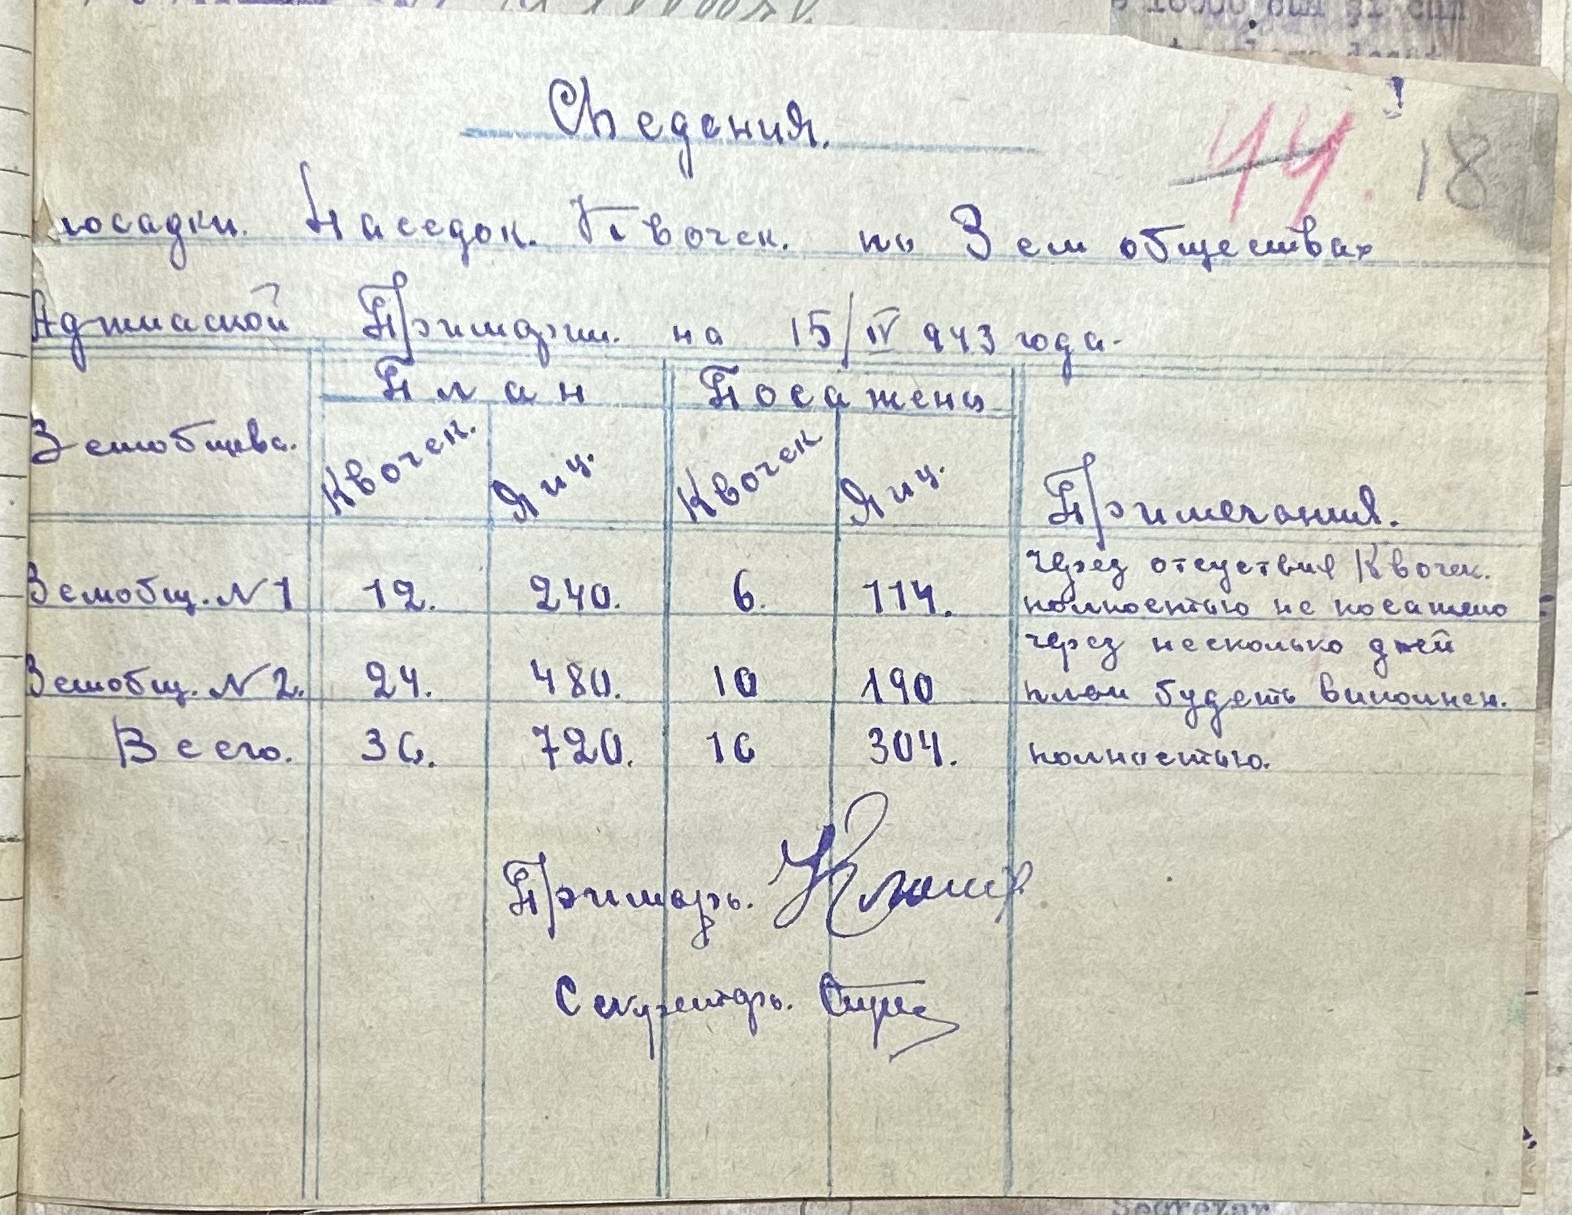 Сведения.
44. 18
посадки. Наседок. Квочек. по Земобществах
Аджиаской Примарии. на 15/IV 943 года.
Земобщева. План Посажено Примечания.
Квочек. Яиц. Квочек Яиц.
Земобщ. №1 12. 240. 6. 114. через отсуствия Квочек.
полностью не посажено
через несколько дней
Земобщ. №2. 24. 480. 10 190 план будеть виполнен.
Всего. 36. 720. 16 304. полностью.
Примарь.
Секретарь.